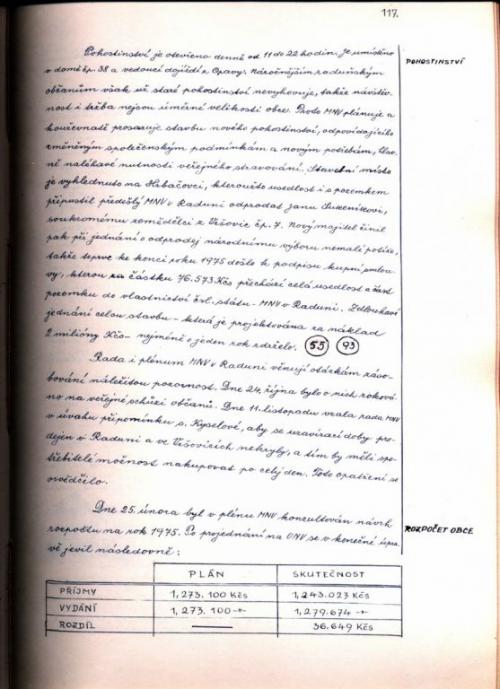 117.
Pohostinství je otevřeno denně od 11 do 22 hodin. Je umístěno
POHOSTINSTVÍ
v domě čp. 38 a vedoucí dojíždí z Opavy. Náročnějším raduňským
občanům však už staré pohostinství nevyhovuje, takže návštěv-
nost i tržba nejsou úměrné velikosti obce. Proto MNV plánuje a
houževnatě prosazuje stavbu nového pohostinství, odpovídajícího
změněným společenským podmínkám a novým potřebám, hlav-
ně naléhavé nutnosti veřejného stravování. Stavební místo
je vyhlédnuto na Hibačovci, kteroužto usedlost i s pozemkem
připustil předešlý MNV v Raduni odprodat Janu
soukromému zemědělci z Vršovic čp. 7. Nový majitel činil
pak při jednání o odprodej národnímu výboru nemalé potíže,
takže teprve ke konci roku 1975 došlo k podpisu kupní smlou-
vy, kterou za částku 76.573 Kčs přechází celá usedlost a část
pozemku do vlastnictví čsl. státu - MNV v Raduni. Zdlouhavé
jednání celou stavbu - která je projektována za náklad
2 milióny Kčs - nejméně o jeden rok zdrželo. 55 93
Rada i plénum MNV v Raduni věnují otázkám záso-
bování náležitou pozornost. Dne 24. října bylo o nich roková-
no na veřejné schůzi občanů. Dne 11. listopadu vzala rada MNV
v úvahu připomínku s. Kyselové, aby se uzavírací doby pro-
dejen v Raduni a ve Vršovicích nekryly, a tím by měli spo-
třebitelé možnost nakupovat po celý den. Toto opatření se
osvědčilo.
Dne 25. února byl v plénu MNV konzultován návrh
ROZPOČET OBCE
rozpočtu na rok 1975. Po projednání na ONV se v konečné úpra-
vě jevil následovně:
PLÁN SKUTEČNOST
PŘÍJMY 1,273.100 Kčs 1,243.023 Kčs
VYDÁNÍ 1,273.100 -"- 1,279.674 -"-
ROZDÍL ——— 36.649 Kčs